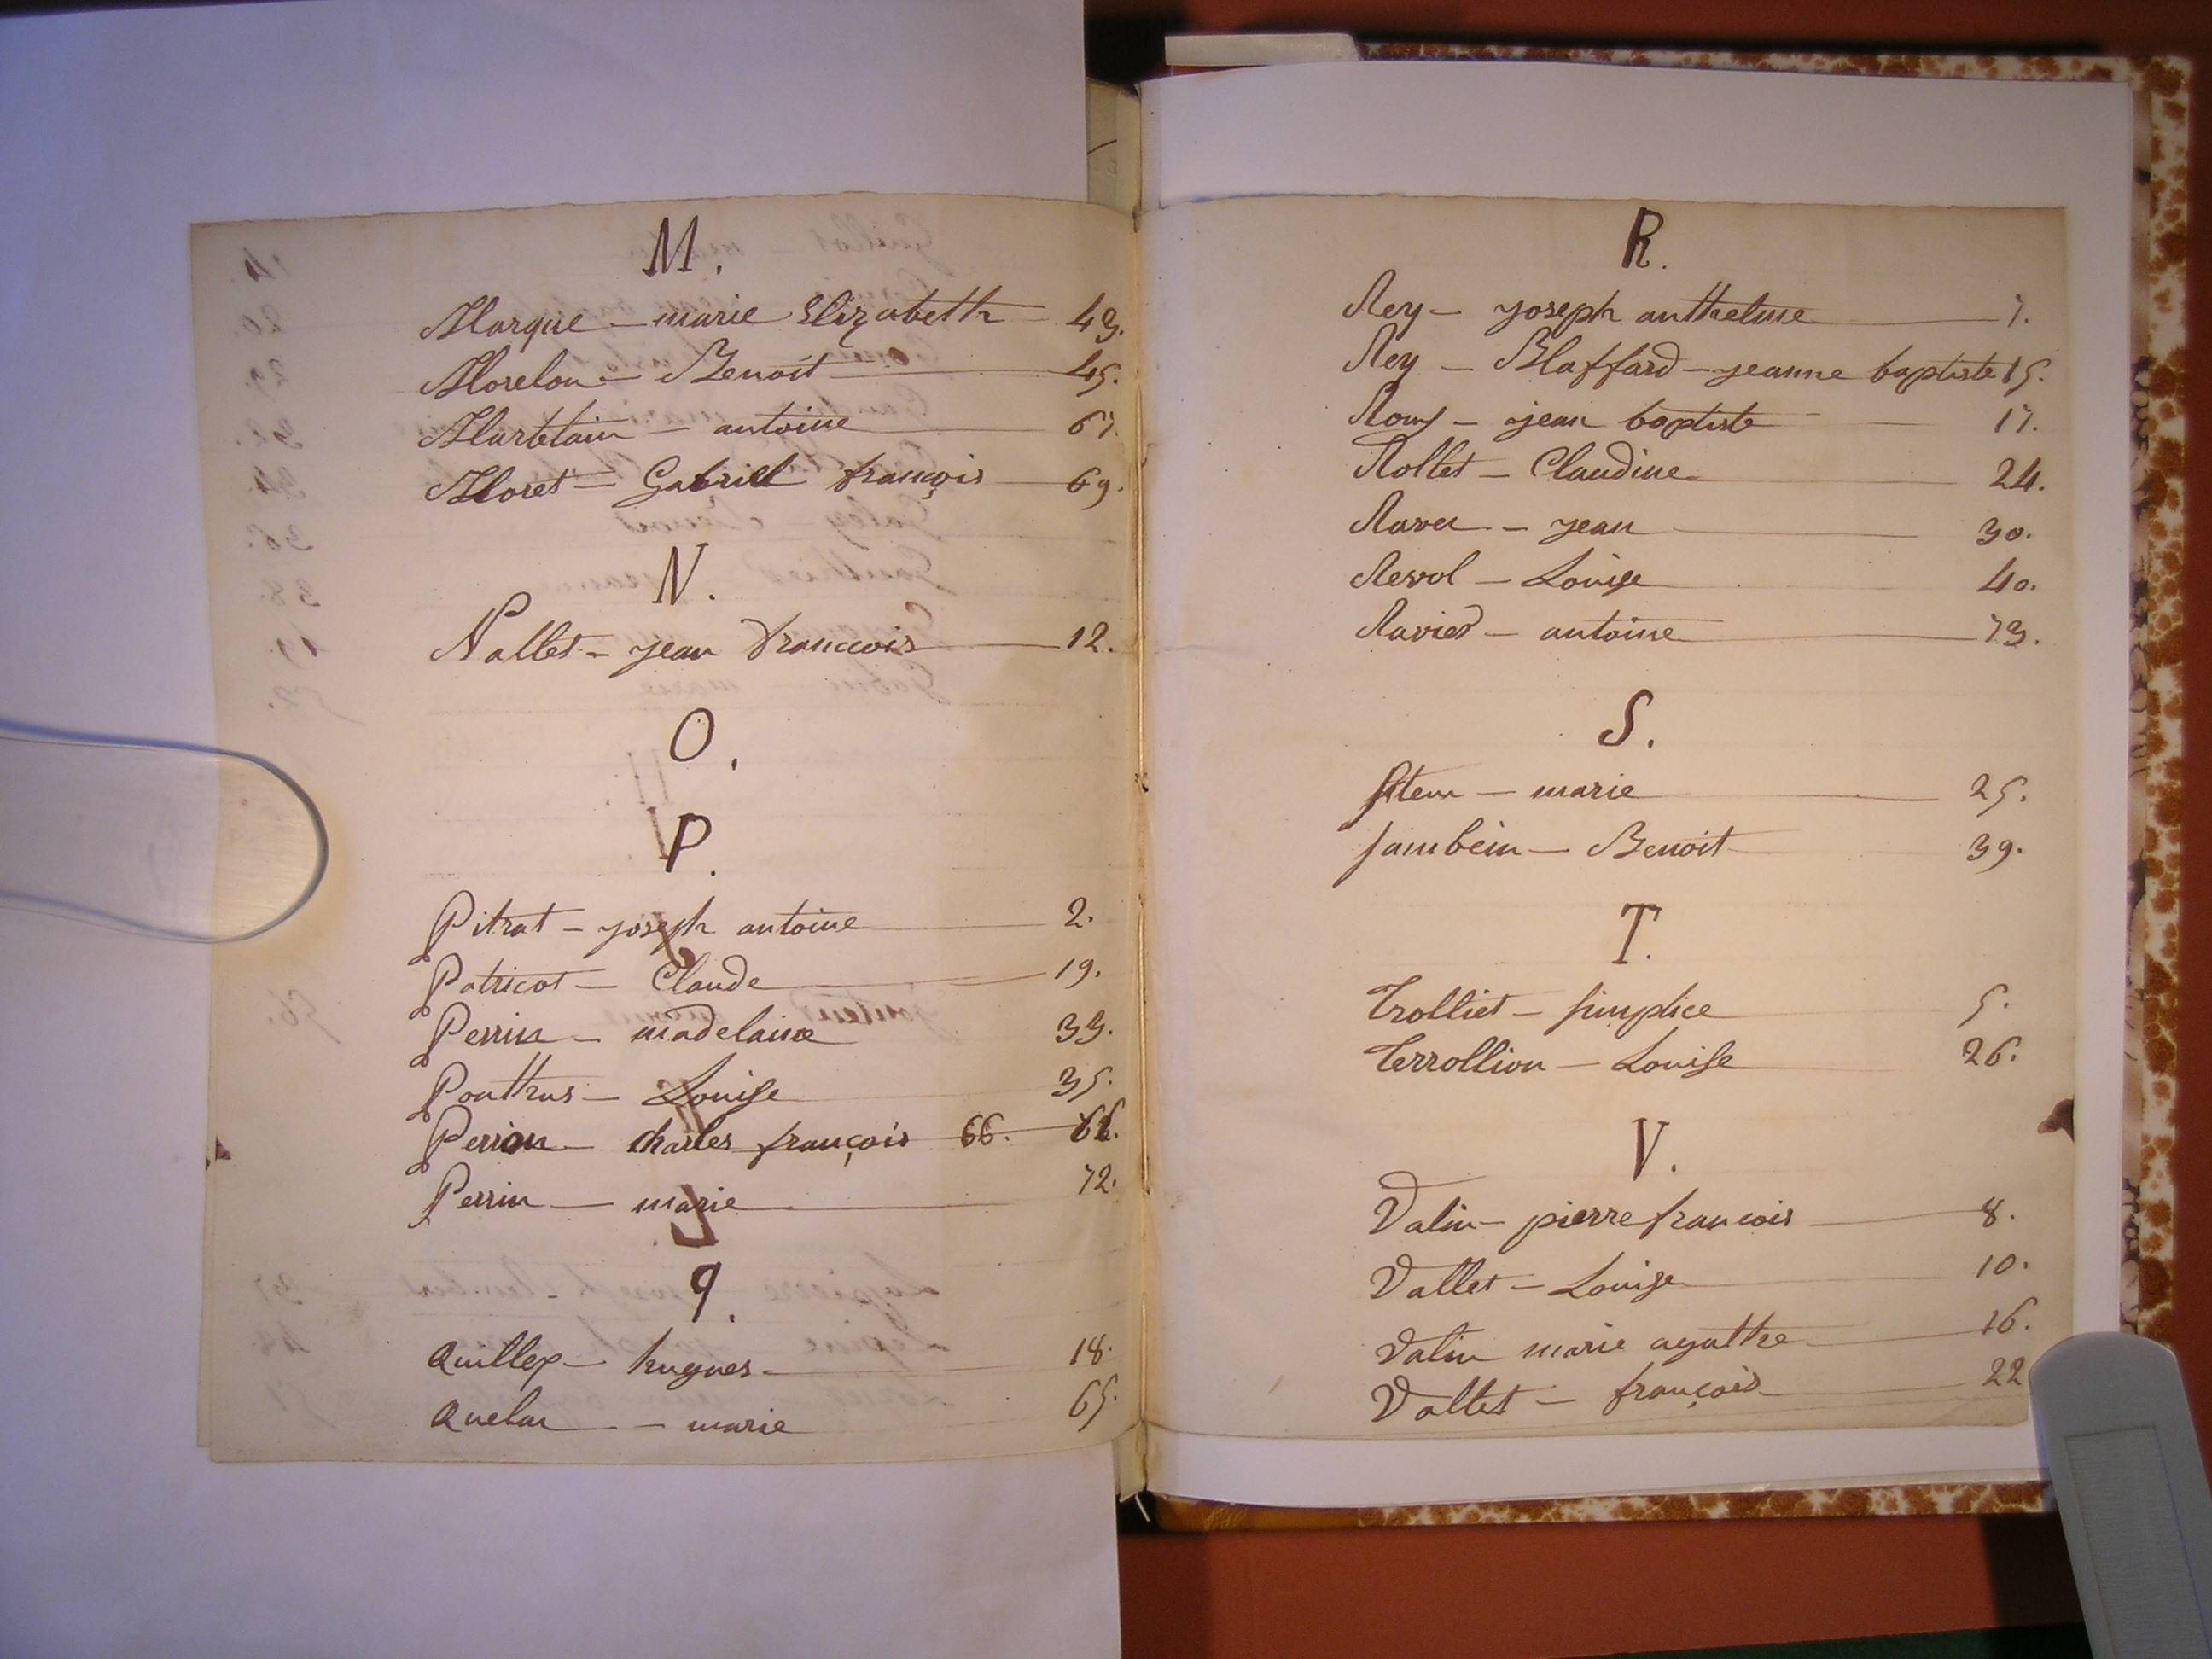 M.
Marque — marie Elizabeth — 43.
Morelon — Benoit — 45.
Martelain — antoine — 67.
Moret — Gabriel françois — 69.
N.
Nallet — jean Franccois — 12.
O.
P.
Pitrat — joseph antoine — 2.
Patricot — Claude — 19.
Perrin — madelaine 33.
Ponthus — Louise 35.
Perrin — charles françois 66.
Perrin — marie 72.
q.
Quillex — hugues — 18.
Quelar — marie 65.
R.
Rey — joseph anthelme — 7.
Rey — Blaffard — jeanne baptiste 15.
Roux — jean baptiste — 17.
Rollet — Claudine — 24.
Raver — jean — 30.
Revol — Louise 40.
Ravier — antoine — 73.
S.
— marie — 25.
Sambein — Benoit 39.
T.
Trolliet — simplice 5.
Terrollion — Louise 26.
V.
Valin — pierre francois — 8.
Vallet — Louise — 10.
Valin marie agathe — 16.
Vallet — françois — 22